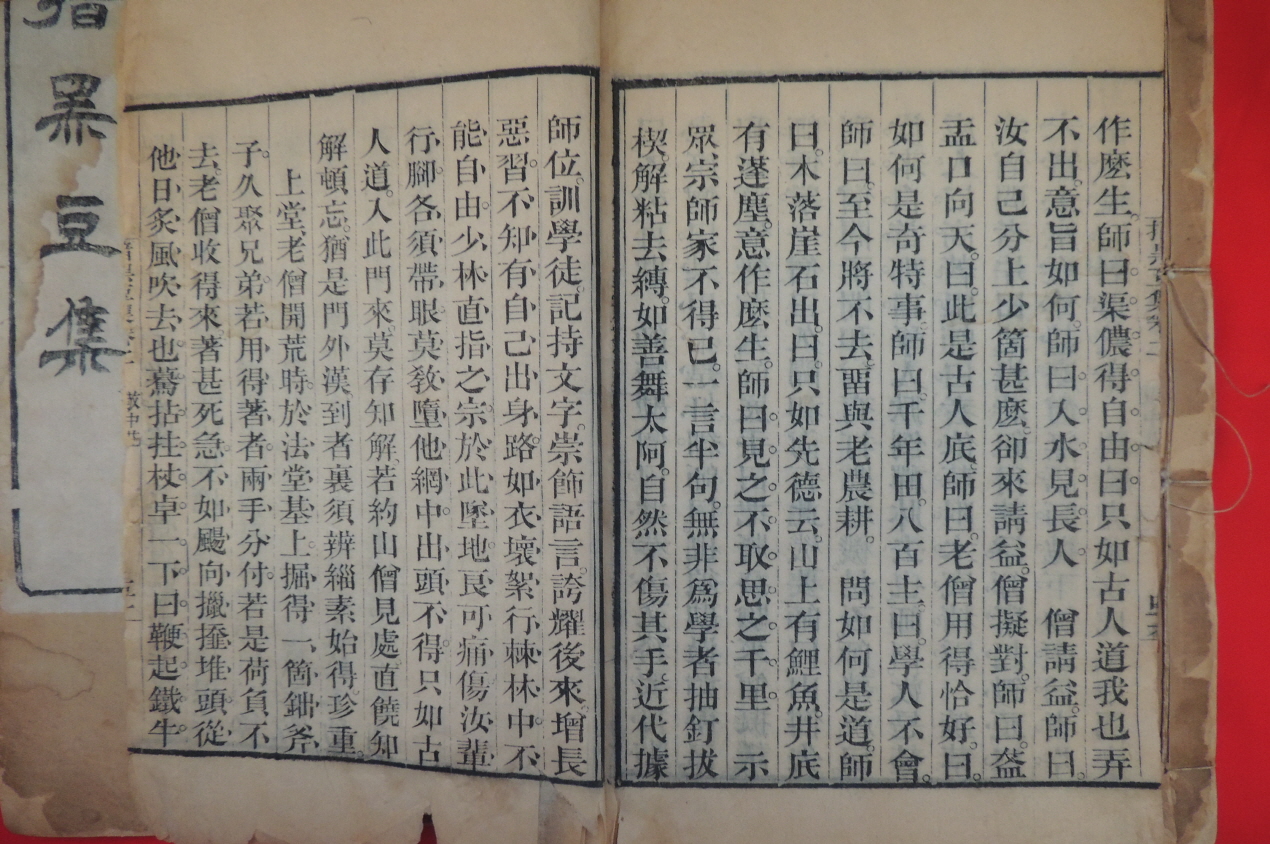 作麽生。師曰。渠儂得自由。曰。只如古人道我也弄
不出。意旨如何。師曰。入水見長人　僧請益。師曰。
汝自己分上少箇甚麽。卻來請益。僧擬對。師曰。盆
盂口向天。曰。此是古人底。師曰。老僧用得恰好。曰。
如何是奇特事。師曰。千年田。八百主。曰。學人不會。
師曰。至今將不去。畱與老農耕。　問如何是道。師
曰。木落崖石出。曰。只如先德云。山上有鯉魚。井底
有蓬塵。意作麽生。師曰。見之不取。思之千里。　示
眾。宗師家不得已。一言半句。無非爲學者抽釘拔
楔。解粘去縛。如善舞太阿。自然不傷其手。近代據
師位。訓學徒。記持文字。崇飾語言。誇耀後來。增長
惡習。不知有自己出身路。如衣壞絮行棘林中。不
能自由。少林直指之宗。於此墜地。良可痛傷。汝輩
行腳。各須帶眼。莫敎墮他網中。出頭不得。只如古
人道。入此門來。莫存知解。若約山僧見處。直饒知
解頓忘。猶是門外漢。到者裏須辨緇素始得。珍重。
上堂。老僧開荒時。於法堂基上。掘得一箇鈯斧
子。久聚兄弟。若用得著者。兩手分付。若是荷負不
去。老僧收得來。著甚死急。不如颺向擸𢶍堆頭。從
他日炙風吹去也。驀拈拄杖。卓一下曰。鞭起鐵牛。
揞黑豆集